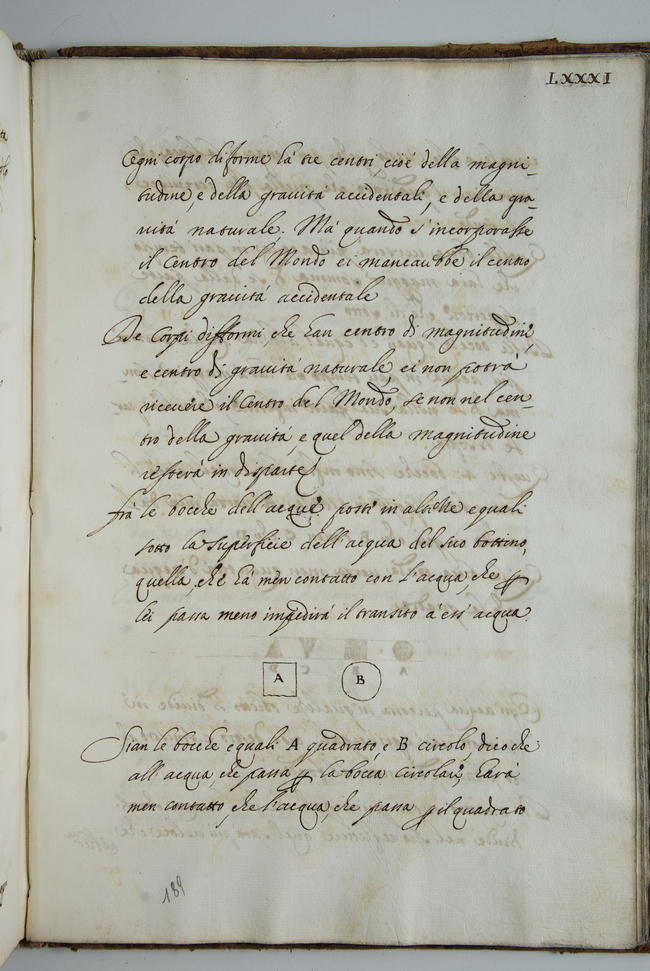 LXXXI
Ogni corpo difforme há tre centri, cioé della magni-
tudine, e della gravitá accidentali, e della gra-
vitá naturale. Má quando s'incorporasse
il Centro del Mondo ei mancarebbe il centro
della gravitá accidentale
De Corpi difformi che han centro di magnitudini,
e centro di gravitá naturale, ei non potrá
ricevere il Centro del Mondo, se non nel cen-
tro della gravitá, e quel della magnitudine
resterá in disparte
frá le bocche dell'acque poste in altezze eguali
sotto la superficie dell'acqua del suo bottino,
quella, che há men contatto con l'acqua, che p
lei passa meno impedirá il transito á ess' acqua.
A B
Sian le bocche eguali A quadrato, e B circolo, dico che
all' acqua, che passa p la bocca circolare, hará
men contatto, che l'acqua, che passa p il quadrato
189